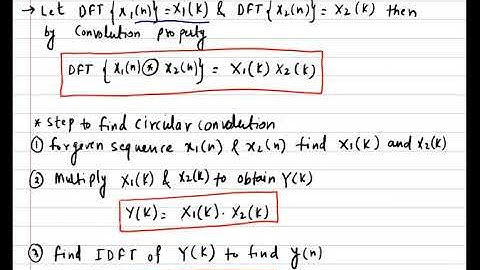 → Let DFT {x₁(n)} = X₁(K) & DFT {x₂(n)} = X₂(K) then
by Convolution property
DFT {x₁(n) ⊛ x₂(n)} = X₁(K) X₂(K)
* Step to find circular convolution
① for geven sequence x₁(n) & x₂(n) find X₁(K) and X₂(K)
② Multiply X₁(K) & X₂(K) to obtain Y(K)
Y(K) = X₁(K) . X₂(K)
③ find IDFT of Y(K) to find y(n)